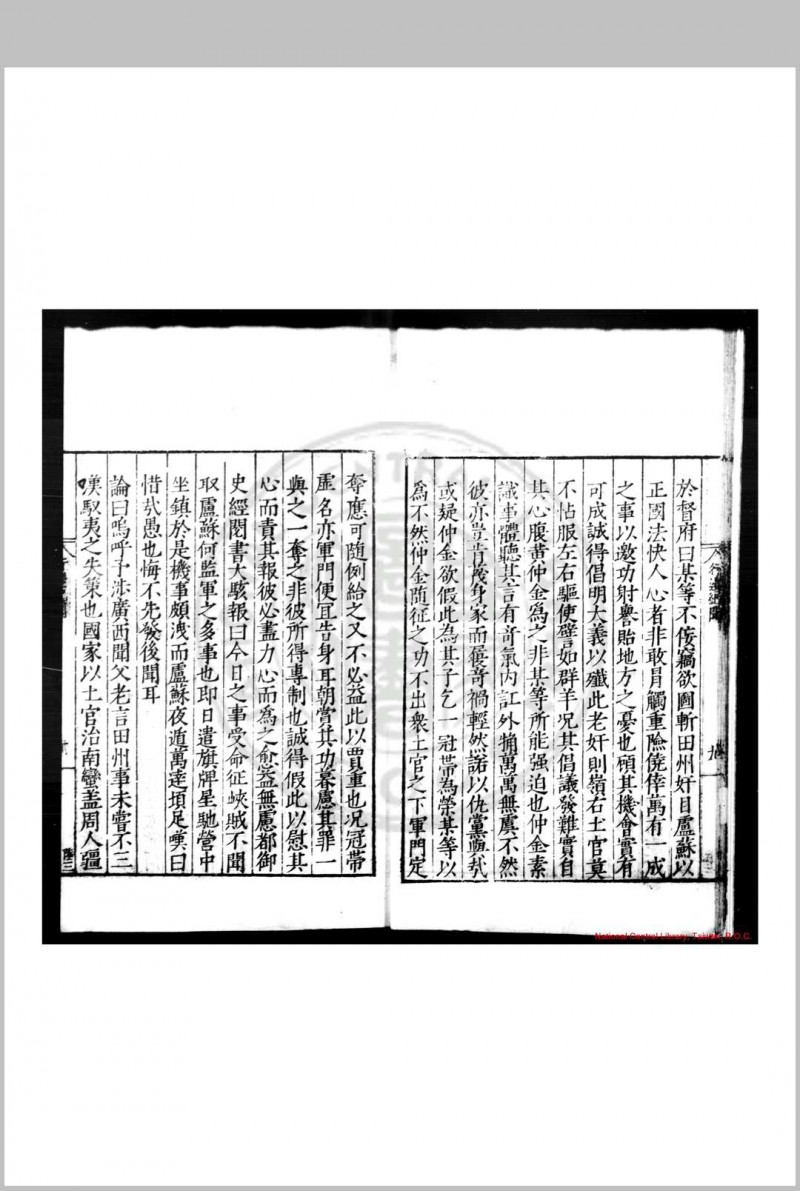 於督府曰某等不俟竊欲圖斬田州奸目盧蘇以
正國法快人心者非敢冐觸重險僥倖萬有一成
之事以邀功射譽貽地方之憂也頋其機會實有
可成誠得倡明大義以殲此老奸則嶺右土官莫
不怗服左右驅使譬如群羊况其倡議發難實自
其心腹黃仲金爲之非某等所能强迫也仲金素
識事體聽其言有奇氣内訌外㨿萬萬無虞不然
彼亦豈肯㒸身家而蹇竒禍輕然諾以仇黨與㢤
或疑仲金欲假此為其子乞一冠帶為榮某等以
爲不然仲金随征之功不出衆土官之下軍門定
奪應可随例給之又不必益此以賈重也况冠帶
虗名亦軍門便冝告身耳朝賞其功暮慮其罪一
與之一奪之非彼所得專制也誠得假此以慰其
心而責其報彼必盡力心而爲之愈益無慮都御
史經閲書大駭報曰今日之事受命征峽賊不聞
取盧蘇何監軍之多事也即日遣旗牌星馳營中
坐鎮於是機事頗洩而盧蘇夜遁萬達頊足嘆曰
惜㢤愚也悔不先發後聞耳
論曰嗚呼予渉廣西聞父老言田州事未嘗不三
嘆馭夷之失策也國家以土官治南蠻盖周人疆
National Central Library, Taiwan, R.O.C.